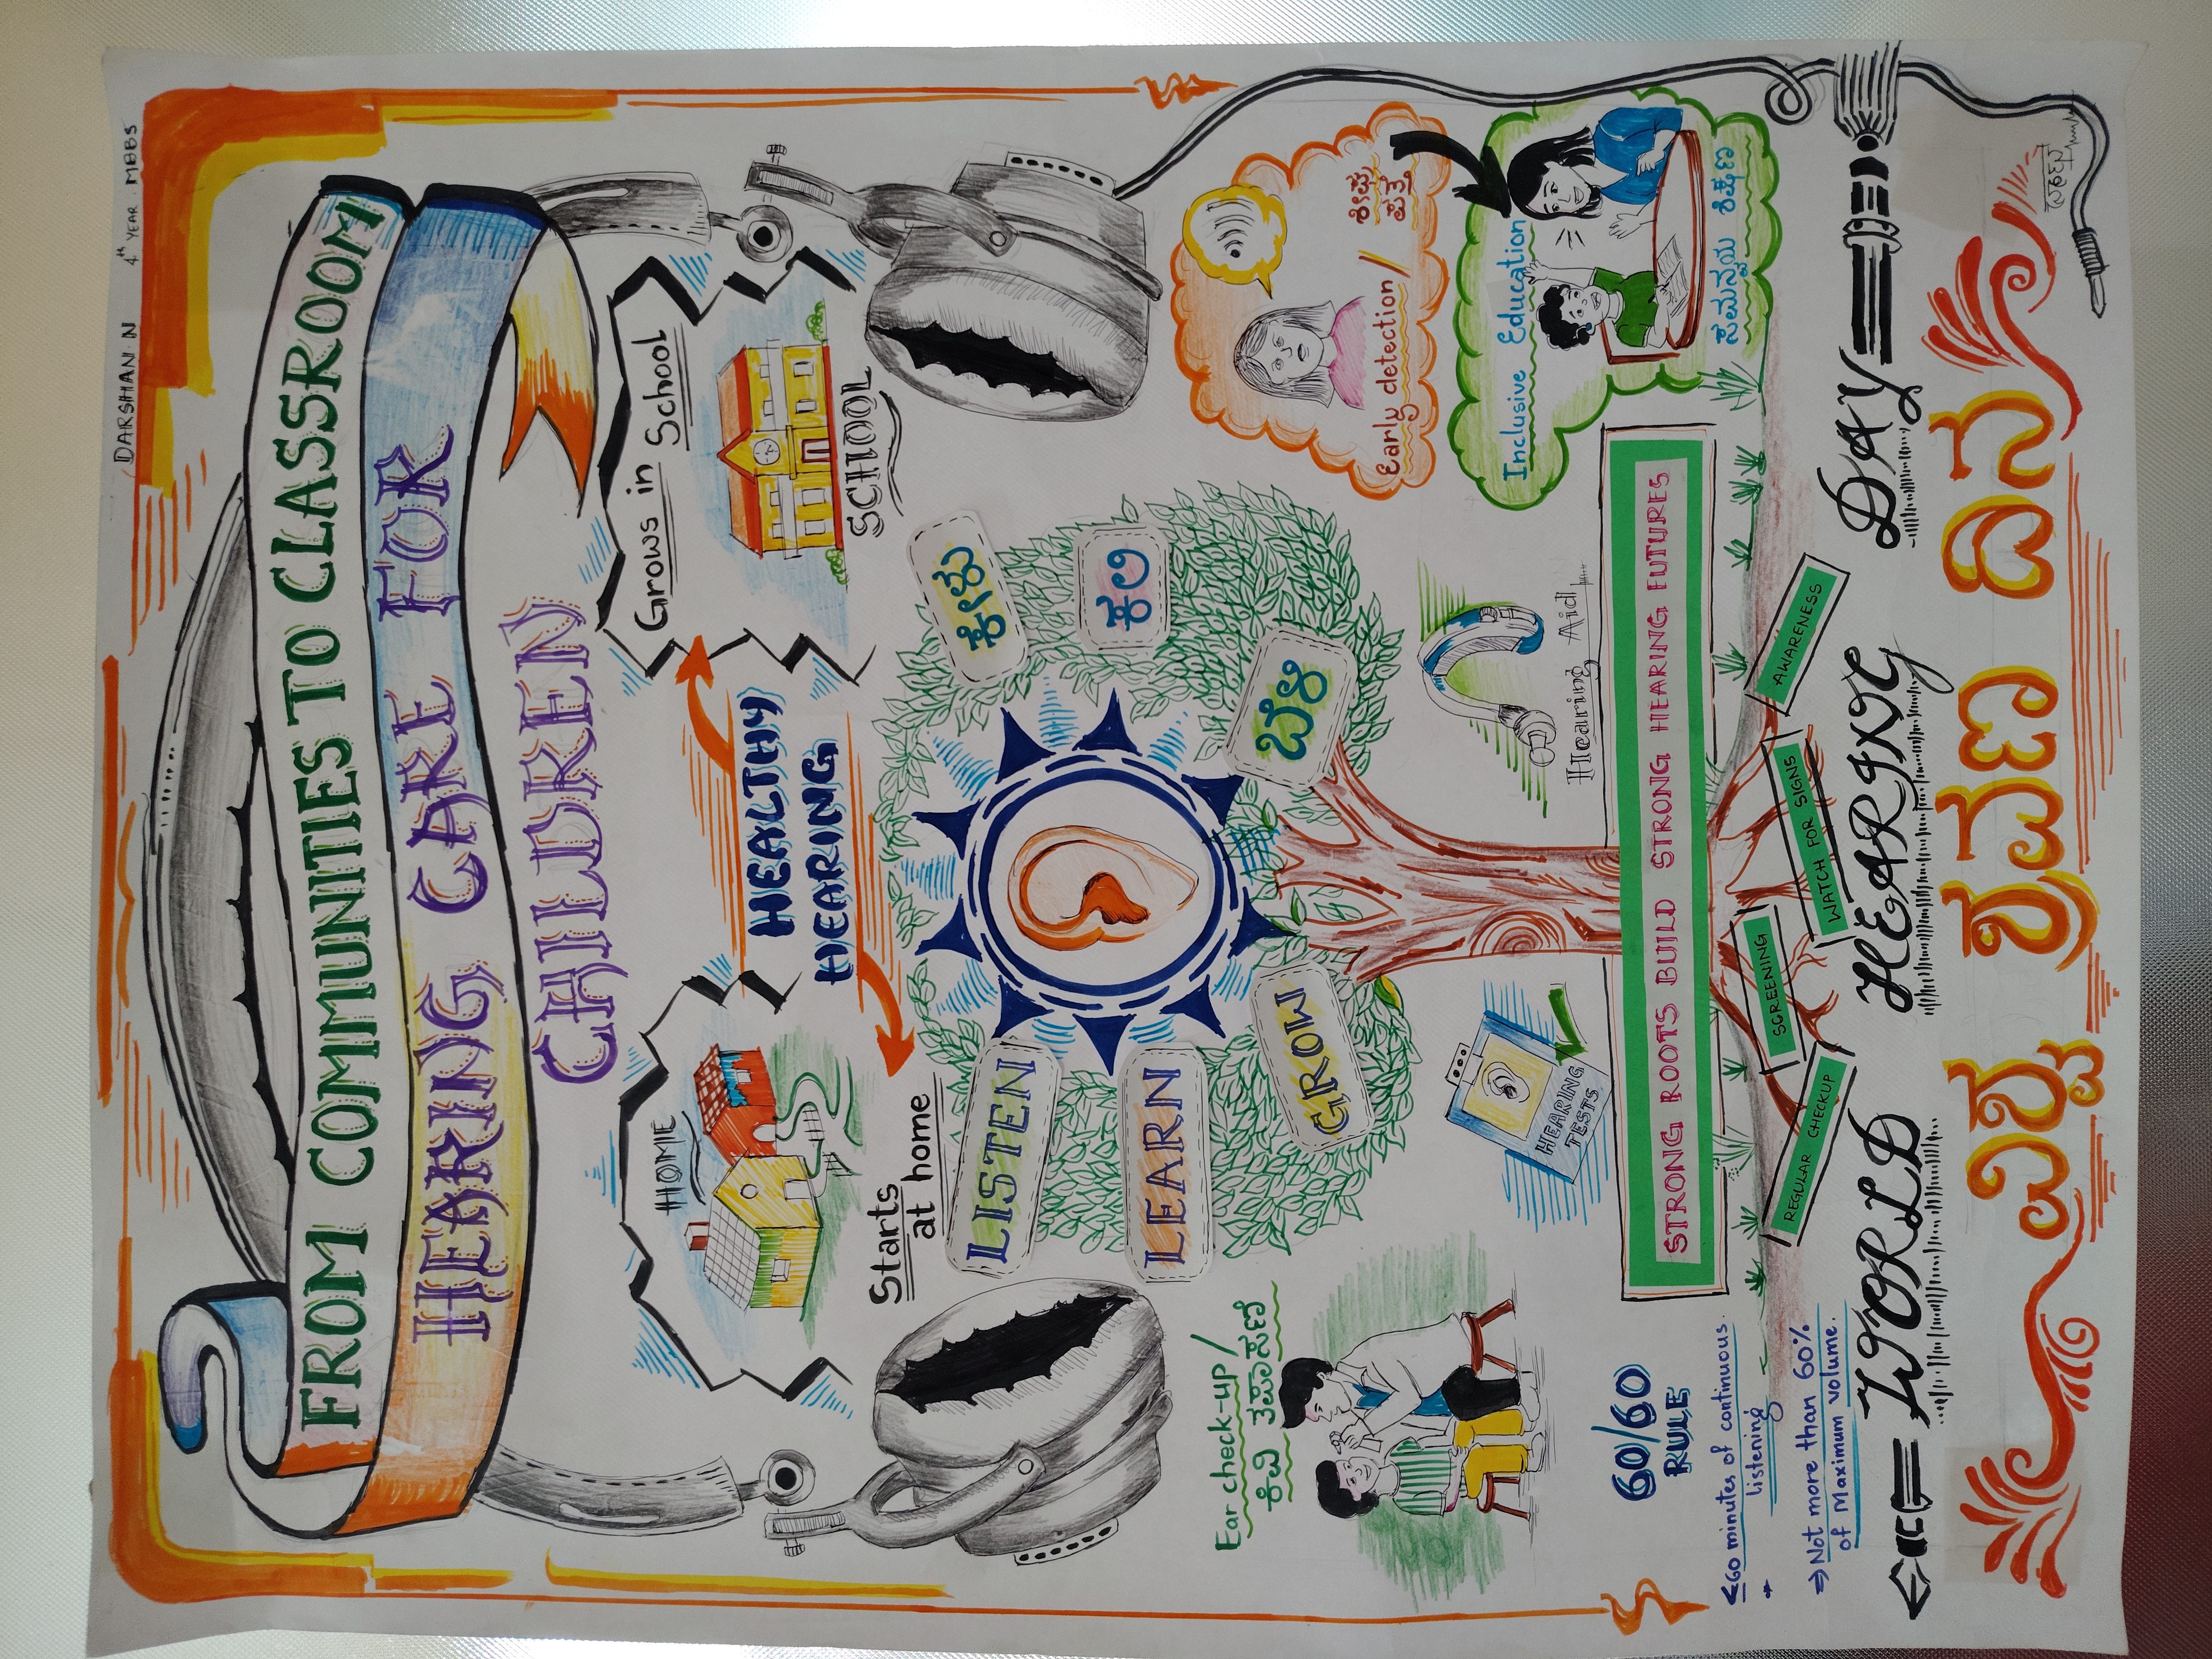 DARSHAN N 4th YEAR MBBS
FROM COMMUNITIES TO CLASSROOM
HEARING CARE FOR
CHILDREN
HOME
HEALTHY
HEARING
Grows in School
SCHOOL
Starts
at home
LISTEN
LEARN
GROW
ಕೇಳು
ಕಲಿ
ಬೆಳೆ
Ear check-up/
ಕಿವಿ ತಪಾಸಣೆ
Early detection/
ಶೀಘ್ರ
ಪತ್ತೆ
Inclusive Education
ಸಮನ್ವಯ ಶಿಕ್ಷಣ
HEARING
TESTS
Hearing Aid
60/60
RULE
≤60 minutes of continuous
listening
⇒ Not more than 60%
of Maximum volume.
STRONG ROOTS BUILD STRONG HEARING FUTURES
REGULAR CHECKUP
SCREENING
WATCH FOR SIGNS
AWARENESS
WORLD HEARING DAY
ವಿಶ್ವ ಶ್ರವಣ ದಿನ